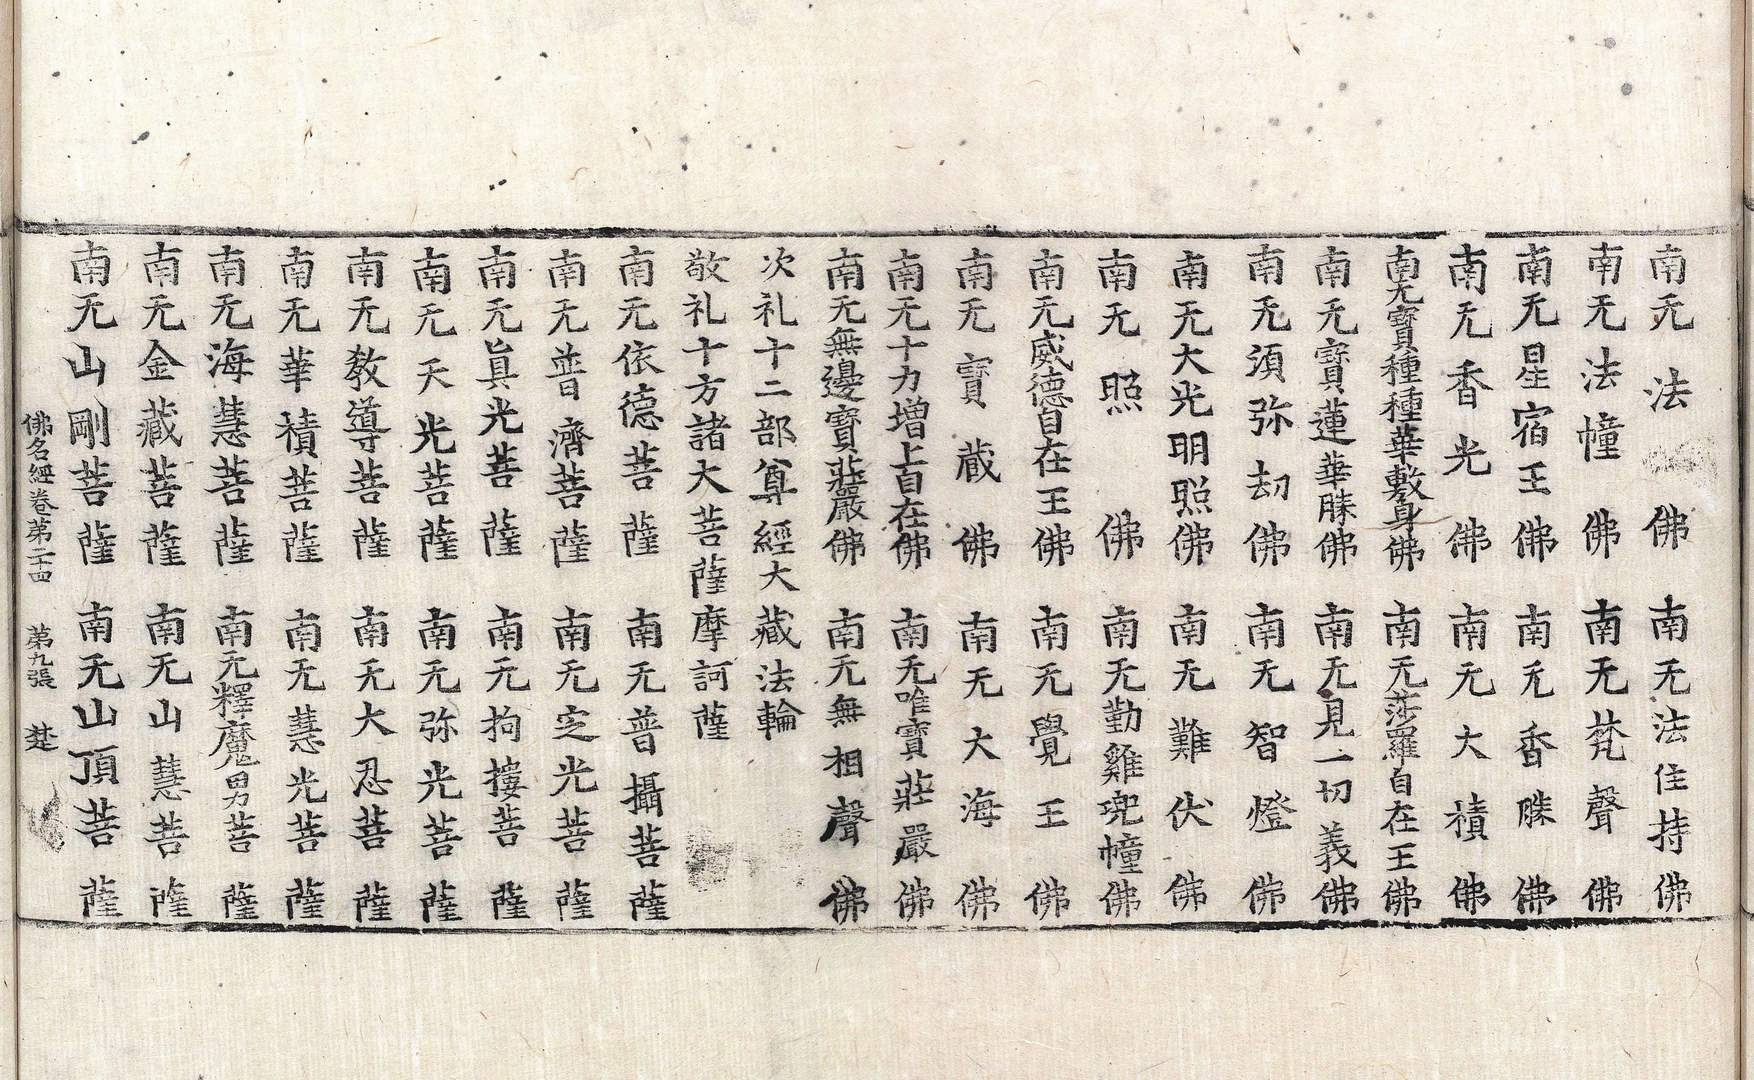 南无法佛 南无法住持佛
南无法幢佛 南无梵聲佛
南无星宿王佛 南无香勝佛
南无香光佛 南无大積佛
南无寶種種華敷身佛 南无莎羅自在王佛
南无寶蓮華勝佛 南无見一切義佛
南无須弥劫佛 南无智燈佛
南无大光明照佛 南无難伏佛
南无照佛 南无勤雞兜幢佛
南无威德自在王佛 南无覺王佛
南无寶藏佛 南无大海佛
南无十力增上自在佛 南无唯寶莊嚴佛
南无無邊寶莊嚴佛 南无無相聲佛
次礼十二部尊經大藏法輪
敬礼十方諸大菩薩摩訶薩
南无依德菩薩 南无普攝菩薩
南无普濟菩薩 南无定光菩薩
南无眞光菩薩 南无拘摟菩薩
南无天光菩薩 南无弥光菩薩
南无教導菩薩 南无大忍菩薩
南无華積菩薩 南无慧光菩薩
南无海慧菩薩 南无釋魔男菩薩
南无金藏菩薩 南无山慧菩薩
南无山剛菩薩 南无山頂菩薩
佛名經卷第二十四 第九張 楚